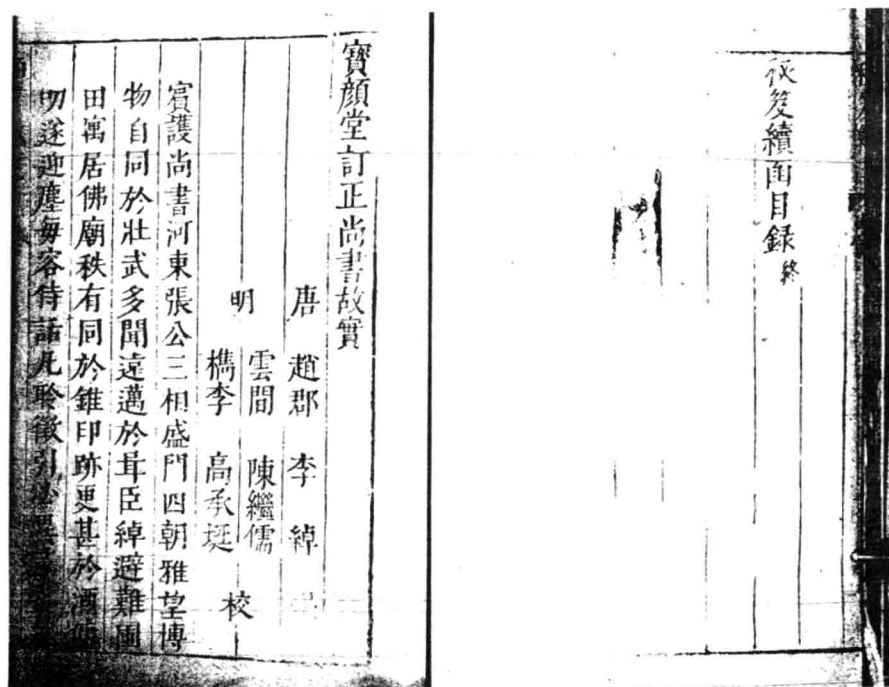 祕笈續函目錄終
寶顏堂訂正尚書故實
唐 趙郡 李綽
明 雲間 陳繼儒
檇李 高承埏 校
賓護尚書河東張公三相盛門四朝雅望博
物自同於壯武多聞遠邁於咠臣綽避難圃
田寓居佛廟秩有同於錐印跡更甚於酒
遂迎塵每容侍話凡聆徵引